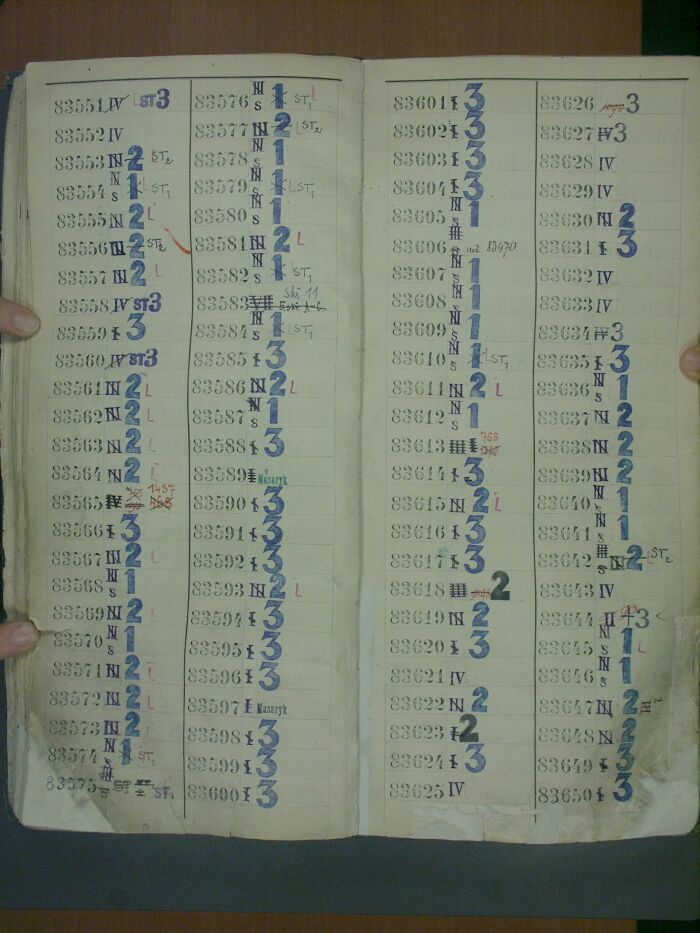 83551 IV L ST3
83552 IV
83553 N 2 ST2
83554 N s 1 L ST1
83555 N 2 L
83556 N 2 ST2
83557 N 2 L
83558 IV ST3
83559 I 3
83560 IV ST3
83561 N 2 L
83562 N 2 L
83563 N 2 L
83564 N 2 L
83565 IV 1437
83566 I 3
83567 N 2 L
83568 N s 1
83569 N 2 L
83570 N s 1
83571 N 2 L
83572 N 2 L
83573 N 2 L
83574 N s 1 ST1
83575 ST1
83576 N s 1 L ST1
83577 N 2 L ST2
83578 N s 1
83579 N s 1 L ST1
83580 N s 1
83581 N 2 L
83582 N s 1 ST1
83583 VII 11
83584 N s 1 L ST1
83585 I 3
83586 N 2 L
83587 N s 1
83588 I 3
83589 I Masaryk
83590 I 3
83591 I 3
83592 I 3
83593 N 2 L
83594 I 3
83595 I 3
83596 I 3
83597 I Masaryk
83598 I 3
83599 I 3
83600 I 3
83601 I 3
83602 I 3
83603 I 3
83604 I 3
83605 N s 1
83606 III s 83470
83607 N s 1
83608 N s 1
83609 N s 1
83610 N s 1 L ST1
83611 N 2 L
83612 N s 1
83613 III I 755
83614 I 3
83615 N 2 L
83616 I 3
83617 I 3
83618 III 2
83619 N 2
83620 I 3
83621 IV
83622 N 2
83623 I 2
83624 I 3
83625 IV
83626 3
83627 IV 3
83628 IV
83629 IV
83630 N 2
83631 I 3
83632 IV
83633 IV
83634 IV 3
83635 I 3
83636 N s 1
83637 N 2
83638 N 2
83639 N 2
83640 N s 1
83641 N s 1
83642 III s N 2 L ST2
83643 IV
83644 II 3
83645 N s 1 L
83646 N s 1
83647 N 2
83648 N 2
83649 I 3
83650 I 3